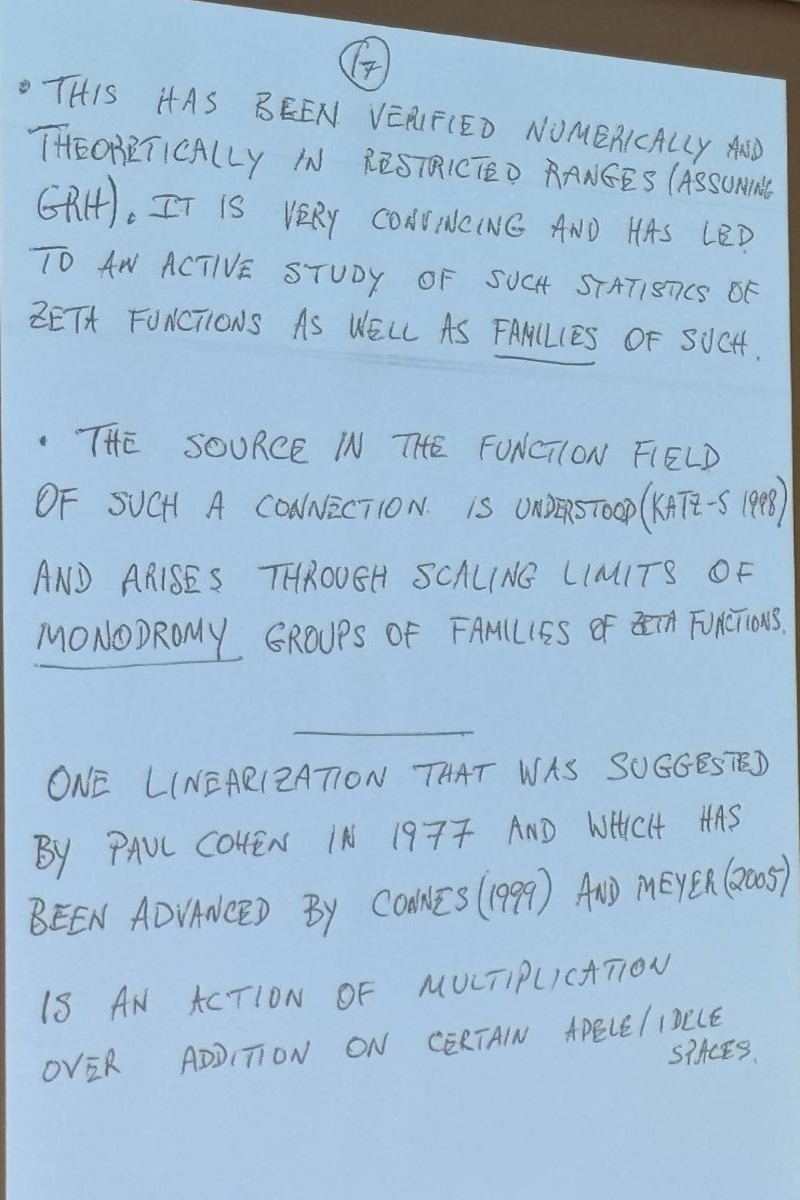 17
• THIS HAS BEEN VERIFIED NUMERICALLY AND
THEORETICALLY IN RESTRICTED RANGES (ASSUMING
GRH). IT IS VERY CONVINCING AND HAS LED
TO AN ACTIVE STUDY OF SUCH STATISTICS OF
ZETA FUNCTIONS AS WELL AS FAMILIES OF SUCH.
• THE SOURCE IN THE FUNCTION FIELD
OF SUCH A CONNECTION IS UNDERSTOOD (KATZ-S 1998)
AND ARISES THROUGH SCALING LIMITS OF
MONODROMY GROUPS OF FAMILIES OF ZETA FUNCTIONS.
ONE LINEARIZATION THAT WAS SUGGESTED
BY PAUL COHEN IN 1977 AND WHICH HAS
BEEN ADVANCED BY CONNES (1999) AND MEYER (2005)
IS AN ACTION OF MULTIPLICATION
OVER ADDITION ON CERTAIN ADELE/IDELE
SPACES.